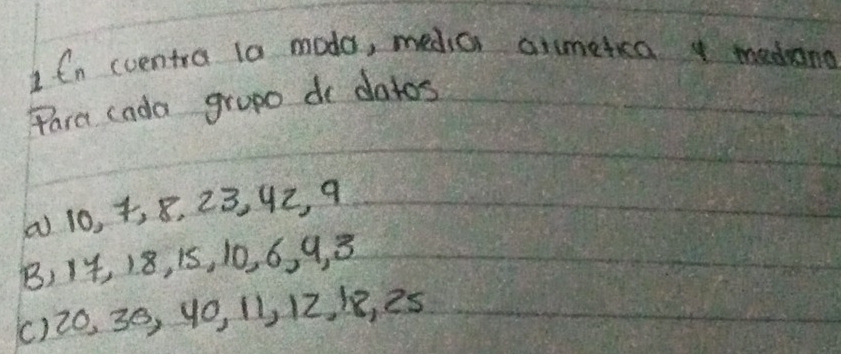 1 En cuentra la moda, media arimetica y mediana
Para cada grupo de datos
a) 10, 7, 8, 23, 42, 9
B) 17, 18, 15, 10, 6, 9, 3
C) 20, 30, 40, 11, 12, 18, 25